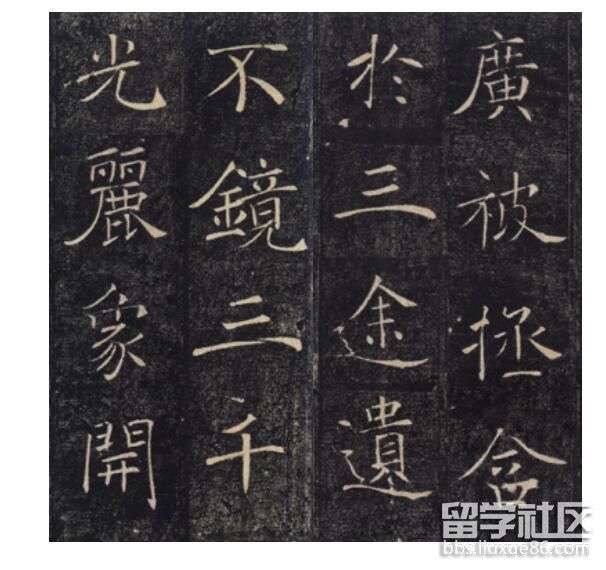 廣被拯含
於三途遺
不鏡三千
光麗象開
留学社区
bbs.liuxue86.com